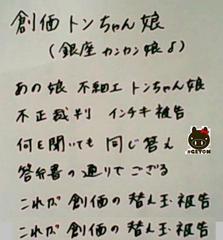 創価トンちゃん娘
(銀座カンカン娘♪)
あの娘 不細工 トンちゃん娘
不正裁判 インチキ被告
何を聞いても 同じ答え
答弁書の通りでござる
これが 創価の替え玉被告
これが 創価の替え玉被告